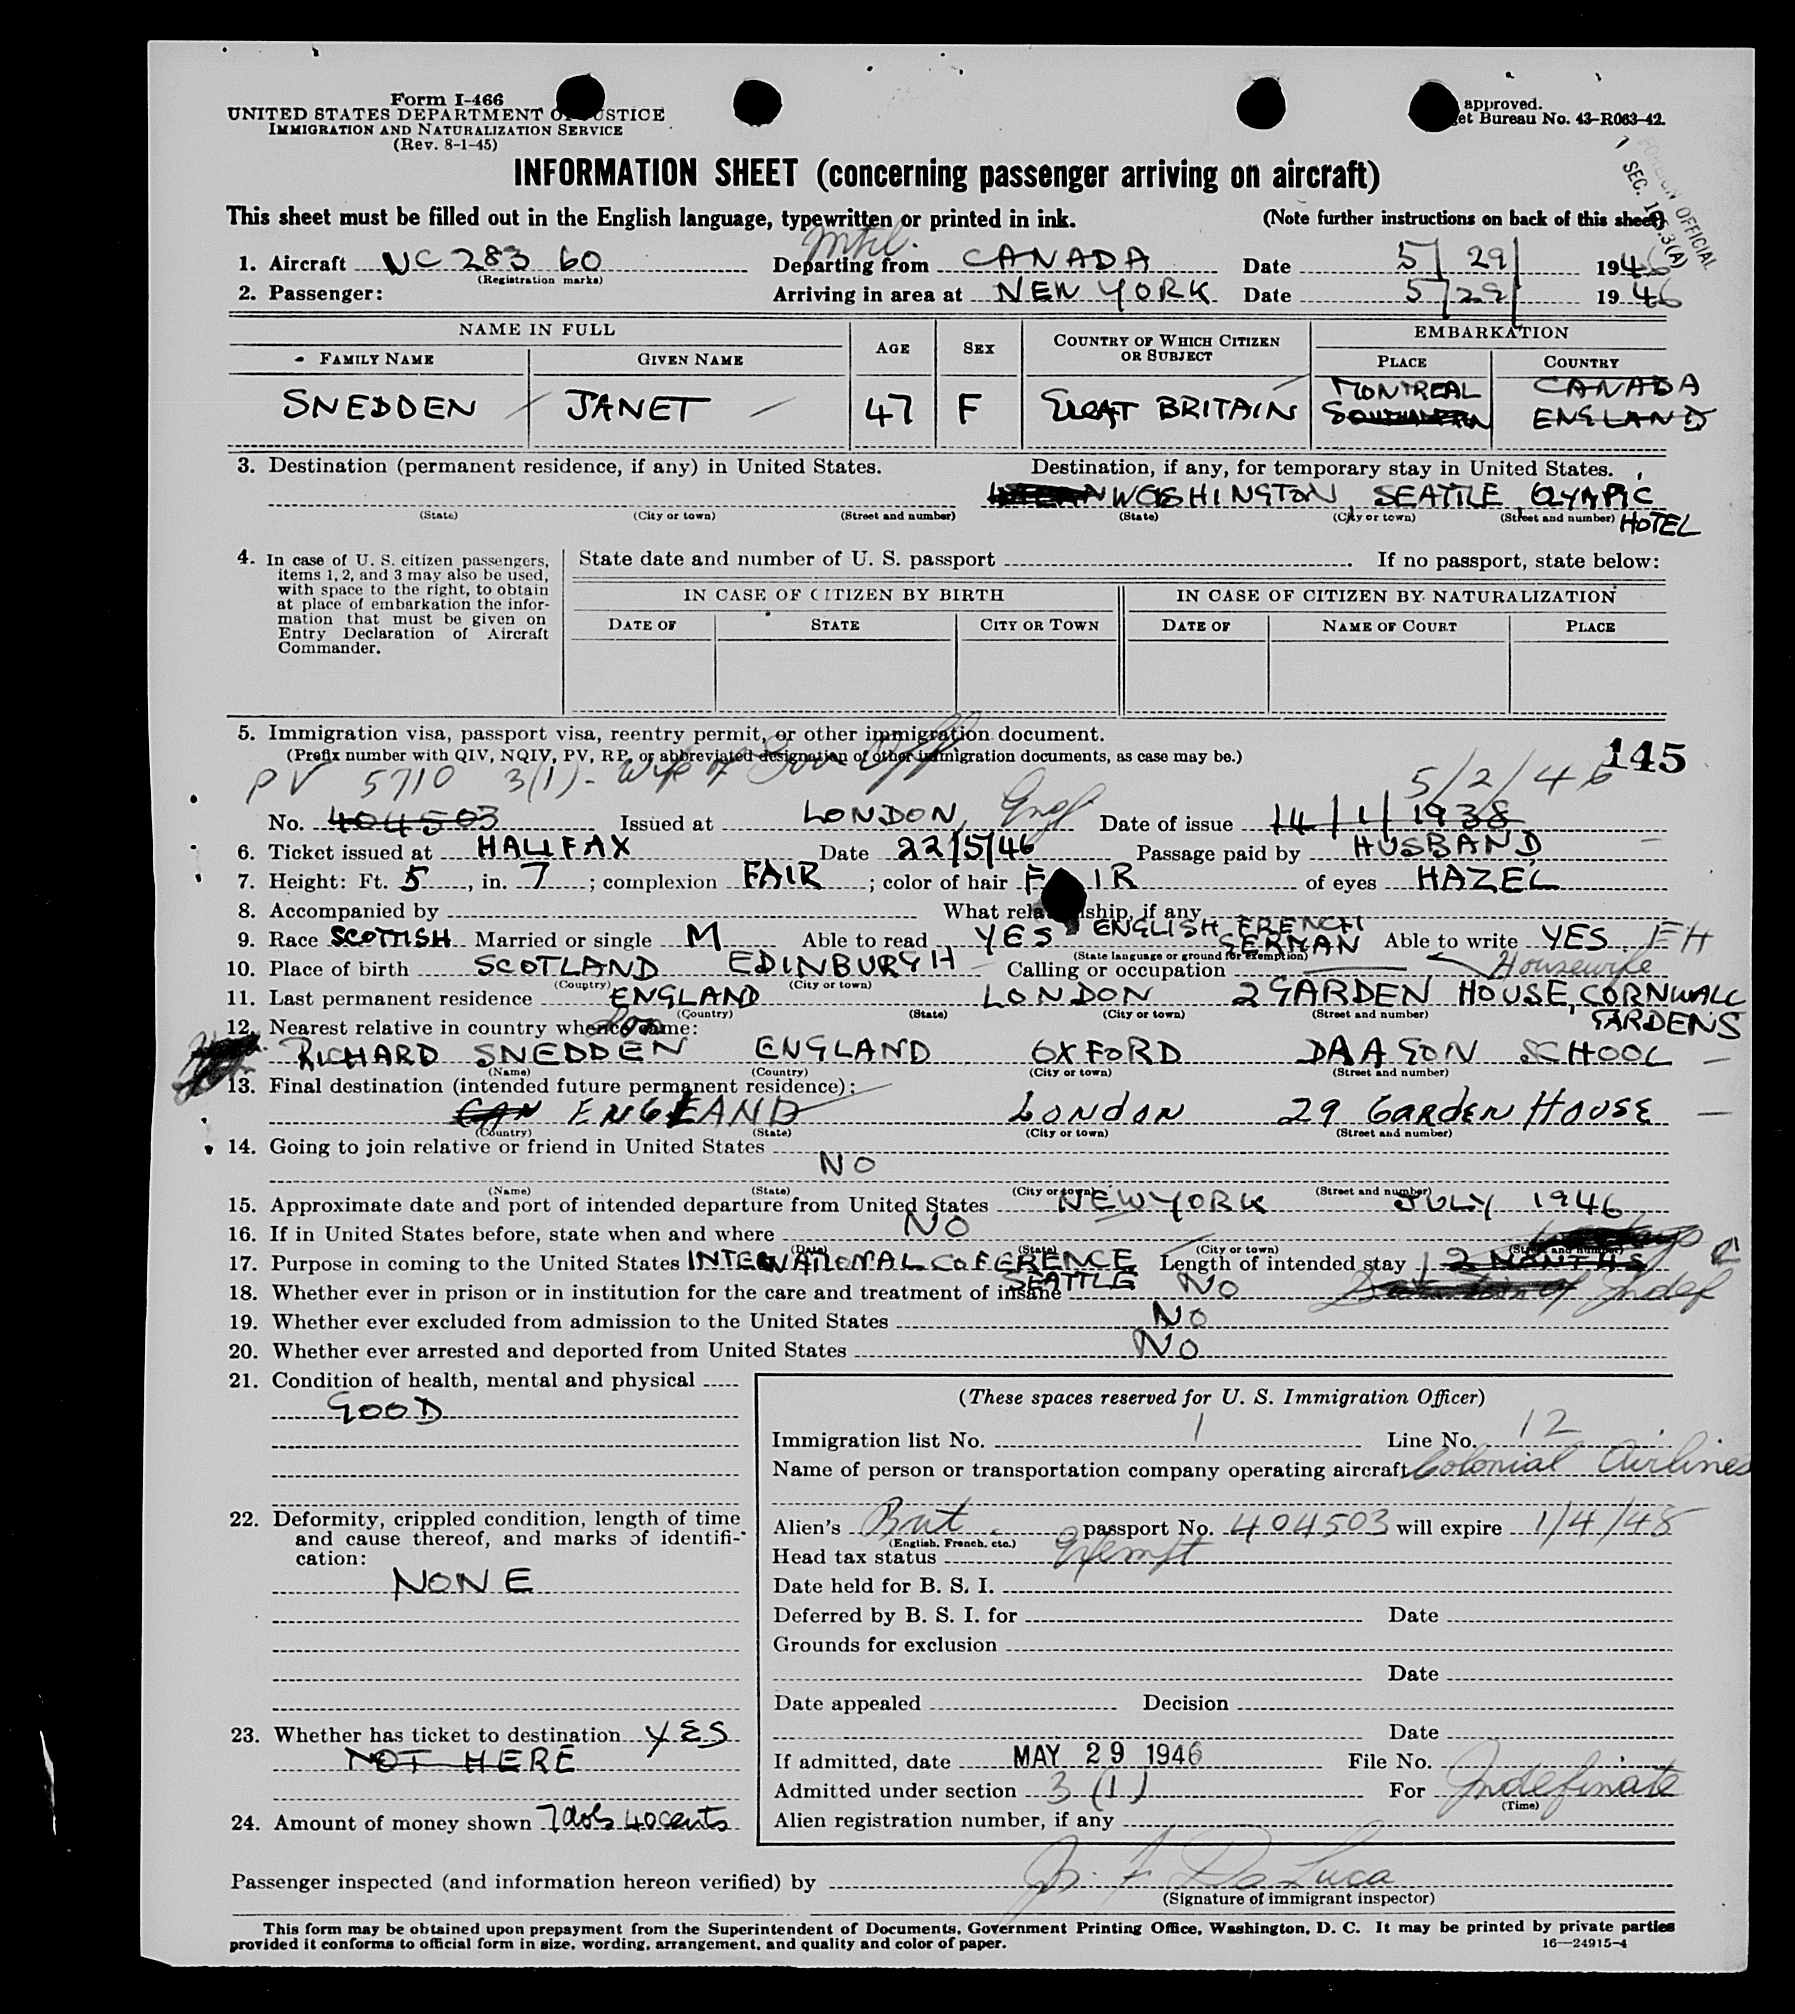 Form I-466
UNITED STATES DEPARTMENT OF JUSTICE
IMMIGRATION AND NATURALIZATION SERVICE
(Rev. 8-1-45)
approved.
et Bureau No. 43-R063-42.
FOREIGN OFFICIAL
SEC. 3(A)
INFORMATION SHEET (concerning passenger arriving on aircraft)
This sheet must be filled out in the English language, typewritten or printed in ink. (Note further instructions on back of this sheet)
Mtrl.
1. Aircraft NC 283 60 Departing from CANADA Date 5/29/ 1946
(Registration marks)
2. Passenger: Arriving in area at NEW YORK Date 5/29/ 1946
NAME IN FULL AGE SEX COUNTRY OF WHICH CITIZEN OR SUBJECT EMBARKATION
FAMILY NAME GIVEN NAME PLACE COUNTRY
MONTREAL CANADA
SNEDDEN JANET 47 F GREAT BRITAIN ENGLAND
3. Destination (permanent residence, if any) in United States. Destination, if any, for temporary stay in United States.
WASHINGTON SEATTLE OLYMPIC
(State) (City or town) (Street and number) (State) (City or town) (Street and number) HOTEL
4. In case of U. S. citizen passengers, items 1, 2, and 3 may also be used, with space to the right, to obtain at place of embarkation the information that must be given on Entry Declaration of Aircraft Commander.
State date and number of U. S. passport . If no passport, state below:
IN CASE OF CITIZEN BY BIRTH IN CASE OF CITIZEN BY NATURALIZATION
DATE OF STATE CITY OR TOWN DATE OF NAME OF COURT PLACE
5. Immigration visa, passport visa, reentry permit, or other immigration document.
(Prefix number with QIV, NQIV, PV, RP, or abbreviated designation of other immigration documents, as case may be.) 145
PV 5710 3(1) - Wife of Gov Off 5/2/46
No. 404503 Issued at LONDON, Eng Date of issue 14/1/1938
6. Ticket issued at HALIFAX Date 22/5/46 Passage paid by HUSBAND
7. Height: Ft. 5, in. 7; complexion FAIR; color of hair FAIR of eyes HAZEL
8. Accompanied by What relationship, if any
ENGLISH FRENCH
9. Race SCOTTISH Married or single M Able to read YES GERMAN Able to write YES EH
(State language or ground for exemption)
10. Place of birth SCOTLAND EDINBURGH Calling or occupation Housewife
(Country) (City or town)
11. Last permanent residence ENGLAND LONDON 2 GARDEN HOUSE, CORNWALL
(Country) (State) (City or town) (Street and number) GARDENS
12. Nearest relative in country whence came: Son
RICHARD SNEDDEN ENGLAND OXFORD DAAGON SCHOOL
(Name) (Country) (City or town) (Street and number)
13. Final destination (intended future permanent residence):
CAN ENGLAND LONDON 29 GARDEN HOUSE
(Country) (State) (City or town) (Street and number)
14. Going to join relative or friend in United States
NO
(Name) (State) (City or town) (Street and number)
15. Approximate date and port of intended departure from United States NEW YORK JULY 1946
16. If in United States before, state when and where NO
(Date) (State) (City or town) (Street and number)
17. Purpose in coming to the United States INTERNATIONAL COFERENCE Length of intended stay 2 MONTHS
SEATTLE
18. Whether ever in prison or in institution for the care and treatment of insane NO Indef
19. Whether ever excluded from admission to the United States NO
20. Whether ever arrested and deported from United States NO
21. Condition of health, mental and physical
GOOD
22. Deformity, crippled condition, length of time and cause thereof, and marks of identification:
NONE
23. Whether has ticket to destination YES
NOT HERE
24. Amount of money shown 7 dols 40 cents
(These spaces reserved for U. S. Immigration Officer)
Immigration list No. 1 Line No. 12
Name of person or transportation company operating aircraft Colonial Airlines
Alien's Brit. passport No. 404503 will expire 1/4/48
(English, French, etc.)
Head tax status Exempt
Date held for B. S. I.
Deferred by B. S. I. for Date
Grounds for exclusion
Date
Date appealed Decision
Date
If admitted, date MAY 29 1946 File No.
Admitted under section 3 (1) For Indefinate
(Time)
Alien registration number, if any
Passenger inspected (and information hereon verified) by De Luca
(Signature of immigrant inspector)
This form may be obtained upon prepayment from the Superintendent of Documents, Government Printing Office, Washington, D. C. It may be printed by private parties
provided it conforms to official form in size, wording, arrangement, and quality and color of paper. 16—24915-4